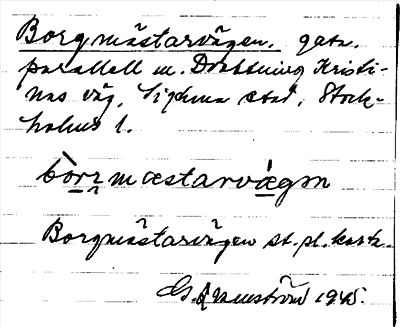 Borgmästarvägen. gata
parallell m. Drottning Kristi-
nas väg, Sigtuna stad, Stock-
holms l.
bòrimæstarvǽgɔn
Borgmästarvägen st.pl.kart.
1945.